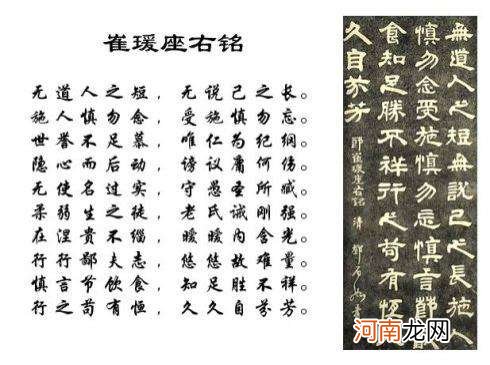 崔瑗座右铭
无道人之短，无说己之长。
施人慎勿念，受施慎勿忘。
世誉不足慕，唯仁为纪纲。
隐心而后动，谤议庸何伤。
无使名过实，守愚圣所臧。
柔弱生之徒，老氏诫刚强。
在涅贵不缁，暧暧内含光。
行行鄙夫志，悠悠故难量。
慎言节饮食，知足胜不祥。
行之苟有恒，久久自芬芳。
無道人之短無說己之長施人
慎勿念受施慎勿忘慎言節飲
食知足勝不祥行之苟有恆久
久自芬芳
節崔瑗座右銘 清 鄧石如書
河南龙网